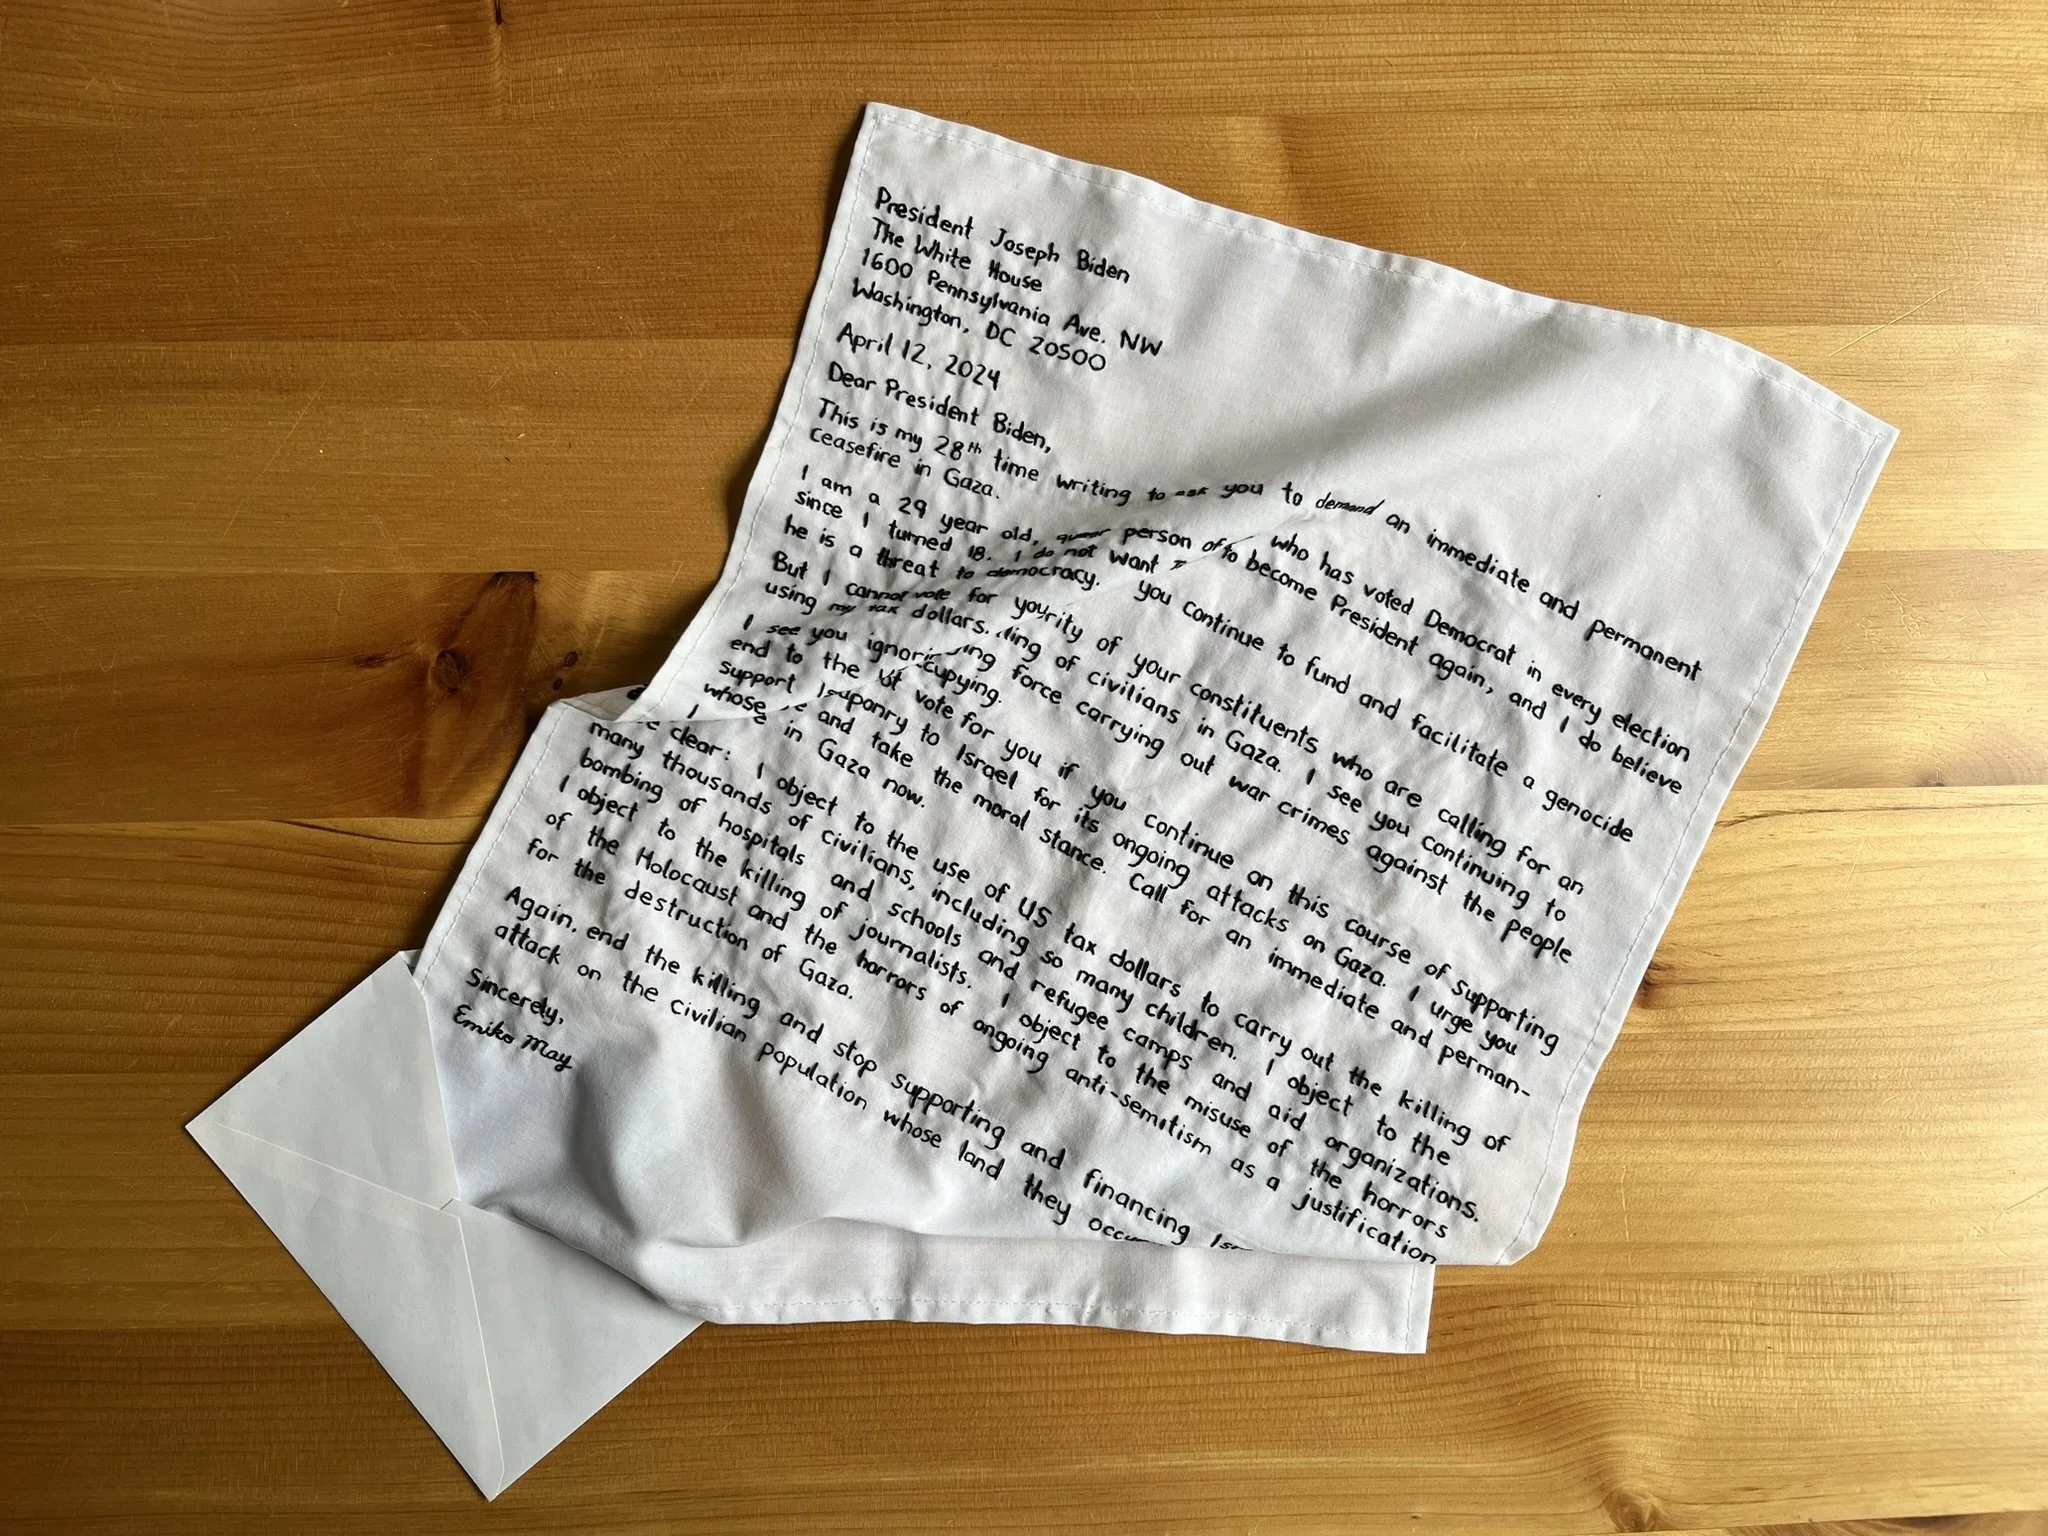 President Joseph Biden
The White House
1600 Pennsylvania Ave. NW
Washington, DC 20500
April 12, 2024
Dear President Biden,
This is my 28th time writing to ask you to demand an immediate and permanent
ceasefire in Gaza.
I am a 29 year old, queer person of who has voted Democrat in every election
since I turned 18. I do not want to become President again, and I do believe
he is a threat to democracy. you continue to fund and facilitate a genocide
But I cannot vote for you
using my tax dollars. of your constituents who are calling for an
I see you ignoring of civilians in Gaza. I see you continuing to
end to the force carrying out war crimes against the people
support
whose
vote for you if you continue on this course of supporting
to Israel for its ongoing attacks on Gaza. I urge you
and take the moral stance. Call for an immediate and perman-
in Gaza now.
clear: I object to the use of US tax dollars to carry out the killing of
many thousands of civilians, including so many children. I object to the
bombing of hospitals and schools and refugee camps and aid organizations.
I object to the killing of journalists. I object to the misuse of the horrors
of the Holocaust and the horrors of ongoing anti-semitism as a justification
for the destruction of Gaza.
Again, end the killing and stop supporting and financing
attack on the civilian population whose land they
Sincerely,
Emiko May